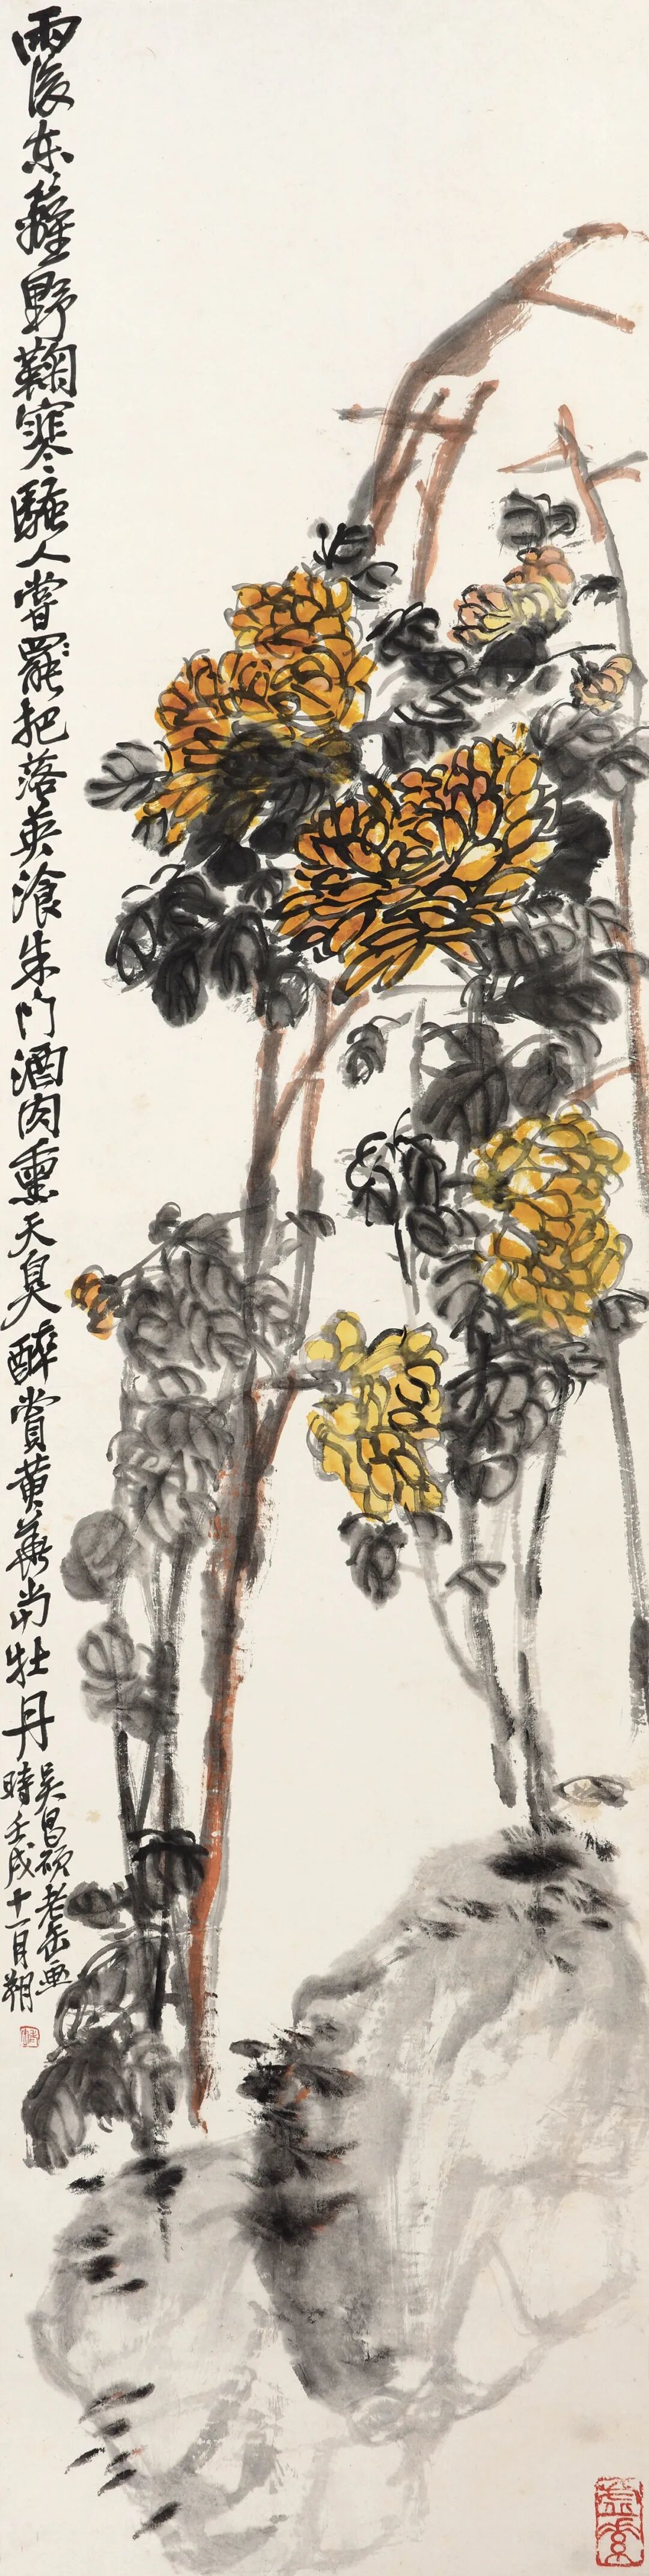 雨後東籬野鞠寒騷人嘗罷把落英湌朱門酒肉熏天臭醉賞黄華當牡丹
吳昌碩老缶画
時壬戌十一月朔